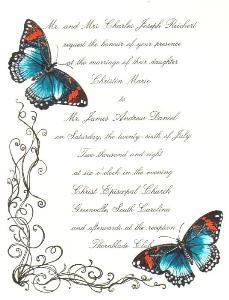 Mr. and Mrs. Charles Joseph Reichert
request the honour of your presence
at the marriage of their daughter
Christin Marie
to
Mr. James Andrew Daniel
on Saturday, the twenty-sixth of July
Two thousand and eight
at six o'clock in the evening
Christ Episcopal Church
Greenville, South Carolina
and afterwards at the reception
Thornblade Club